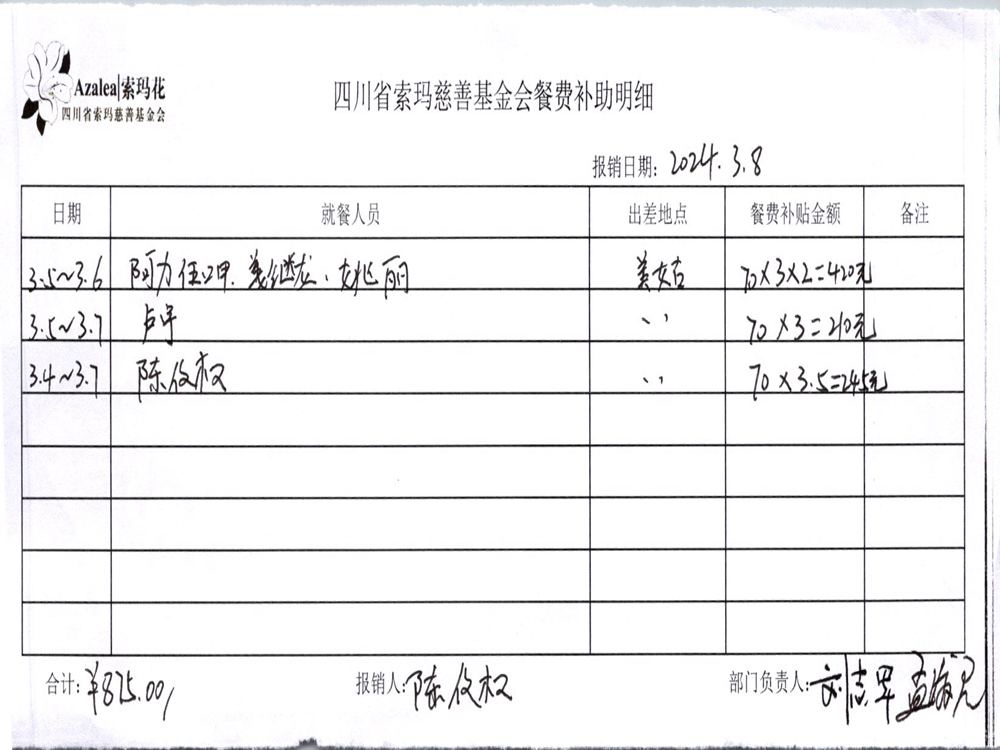 Azalea|索玛花
四川省索玛慈善基金会
四川省索玛慈善基金会餐费补助明细
报销日期：2024.3.8
日期 就餐人员 出差地点 餐费补贴金额 备注
3.5~3.6 阿力任卫甲、姜继龙、姚丽 美姑 70×3×2=420元
3.5~3.7 卢宇 〃 70×3=210元
3.4~3.7 陈俊权 〃 70×3.5=245元
合计：¥875.00/ 报销人：陈俊权 部门负责人：刘志军 孟